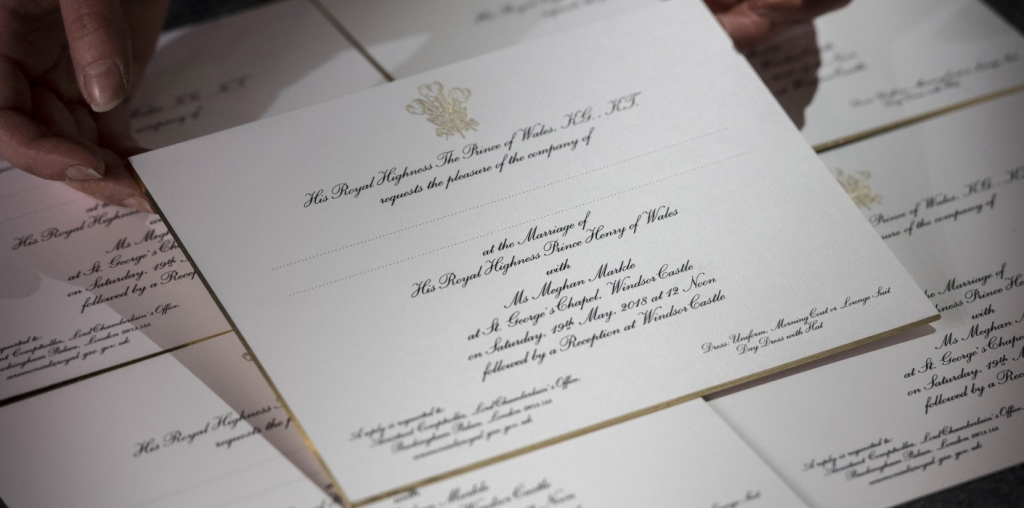 His Royal Highness The Prince of Wales, K.G., K.T.
requests the pleasure of the company of
at the Marriage of
His Royal Highness Prince Henry of Wales
with
Ms Meghan Markle
at St. George's Chapel, Windsor Castle
on Saturday, 19th May, 2018 at 12 Noon
followed by a Reception at Windsor Castle
Dress: Uniform, Morning Coat or Lounge Suit
Day Dress with Hat
A reply is requested to:
Lord Chamberlain's Office,
Buckingham Palace, London
His Royal Highness
Ms
at St. George's
on Saturday, 19th
followed by a
His Royal Highness
requests the
Prince of Wales, K.G.,
of the company of
Marriage of
with
Ms Meghan
at St. George's
on Saturday, 19th
followed by a
A reply is requested to:
Lord Chamberlain's Office,
Buckingham Palace, London
Markle
Windsor Castle